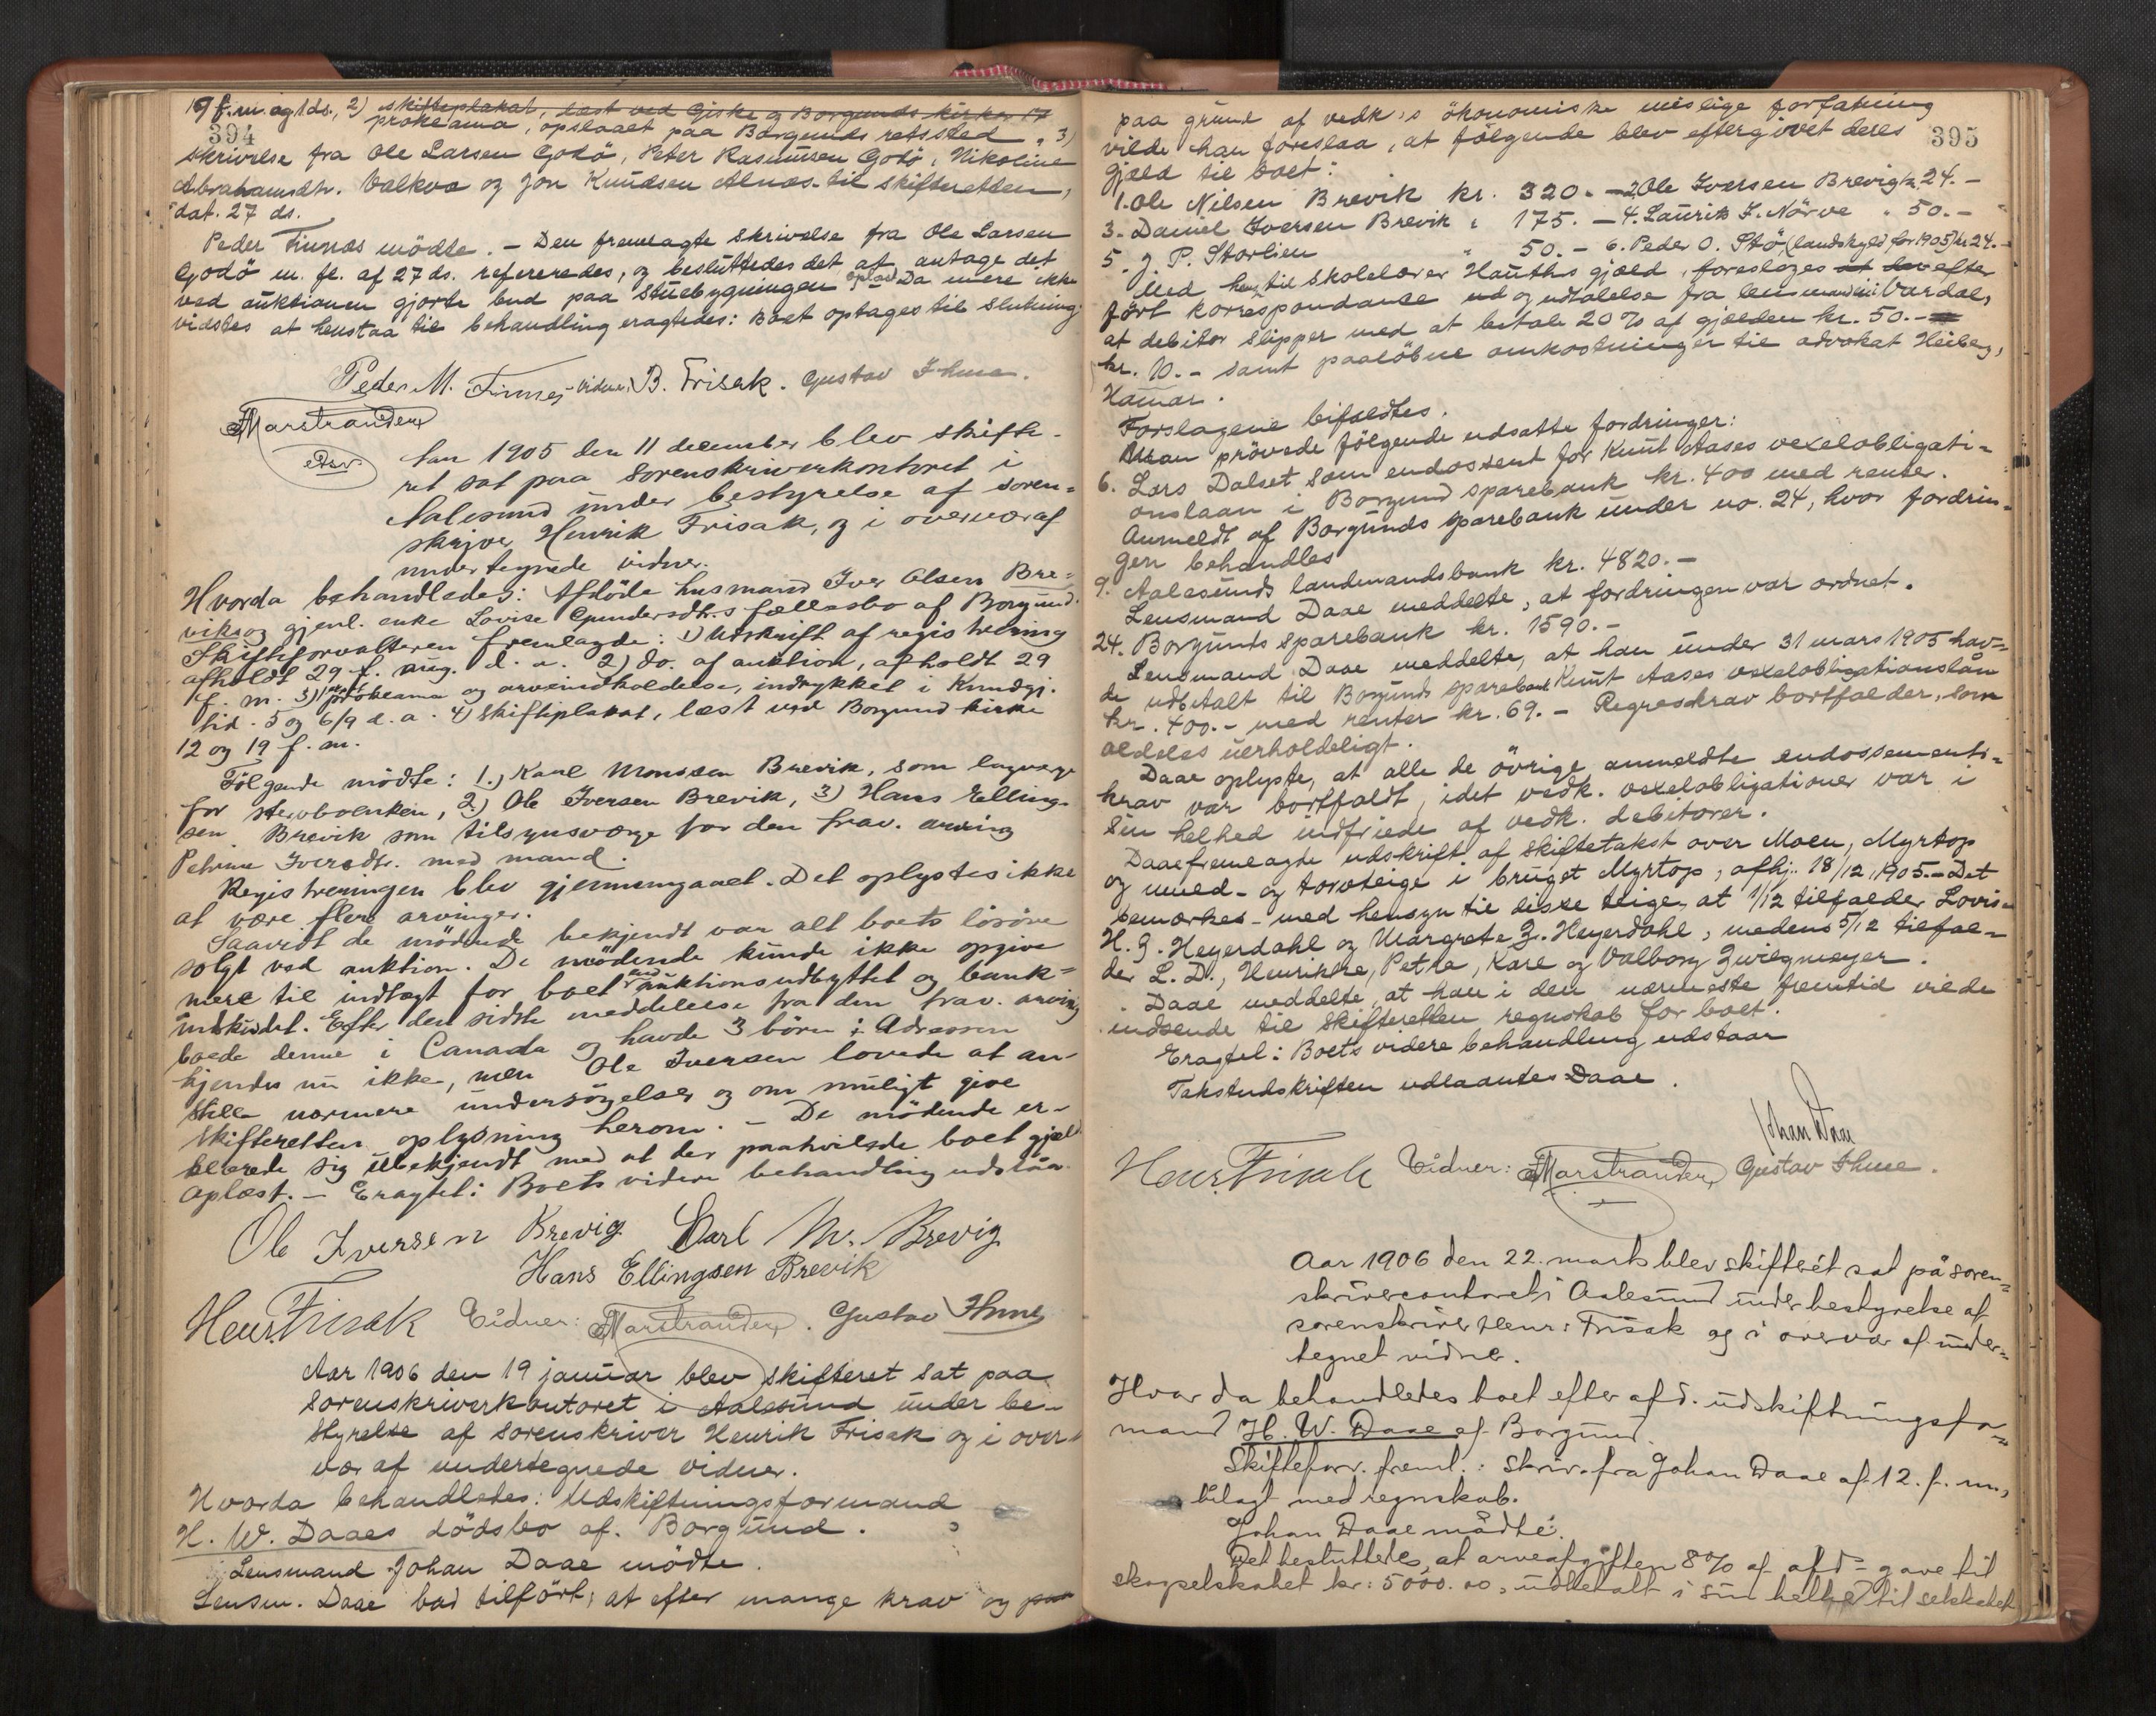 19 f. m. og 1 ds., 2) skifteplakat, læst ved Giske og Borgunds kirker 17
394
proklama, opslaaet paa Borgunds retssted „ 3)
skrivelse fra Ole Larsen Godö, Peter Rasmussen Godö, Nikoline
Abrahamsdtr. Valkva og Jon Knudsen Alnæs til skifteretten,
dat. 27 ds.
Peder Finnæs mödte. – Den fremlagte skrivelse fra Ole Larsen
Godö m. fl. af 27 ds. refereredes, og besluttedes det at antage det
ved auktionen gjorte bud paa stuebygningen. Da mere ikke
vidstes at henstaa til behandling eragtedes: Boet optages til slutning.
Peder M. Finnes Vidner: B. Frisak. Gustav Ihme.
Marstrander
Aar 1905 den 11 december blev skifte-
ret sat paa sorenskriverkontoret i
Aalesund under bestyrelse af soren-
skriver Henrik Frisak, og i overvær af
undertegnede vidner.
Hvorda behandledes: Afdöde husmand Iver Olsen Bre-
viks og gjenl. enke Lovise Gundersdtr.s fællesbo af Borgund.
Skifteforvalteren fremlagde: 1) Udskrift af registrering
afholdt 29 f. aug. d. a. 2) do. af auktion, afholdt 29
f. m. 3) proklama og arveindkaldelse, indrykket i Kundgj.
tid. 5 og 6/9 d. a. 4) skifteplakat, læst ved Borgund kirke
12 og 19 f. m.
Fölgende mödte: 1.) Karl Monssen Brevik, som lagværge
for sterboenken, 2.) Ole Iversen Brevik, 3) Hans Elling-
sen Brevik som tilsynsværge for den frav. arving
Petrine Iversdtr. med mand.
Registreringen blev gjennemgaaet. Det oplystes ikke
at være flere arvinger.
Saavidt de mödende bekjendt var alt boets lösöre
solgt ved auktion. De mödende kunde ikke opgive
mere til indtægt for boet end auktionsudbyttet og bank-
indskudet. Efter den sidste meddelelse fra den frav. arving
boede denne i Canada og havde 3 börn. Adressen
kjendes nu ikke, men Ole Iversen lovede at an-
stille nærmere undersögelser og om muligt give
skifteretten oplysning herom. – De mödende er-
klærede sig ubekjendt med at der paahvilede boet gjæld.
Oplæst. – Eragtet: Boets videre behandling udstaar.
Ole Iversen Brevig Carl M. Brevig
Hans Ellingsen Brevik
Henr. Frisak Vidner: Marstrander. Gustav Ihme
Aar 1906 den 19 januar blev skifteret sat paa
sorenskriverkontoret i Aalesund under be-
styrelse af sorenskriver Henrik Frisak og i over-
vær af undertegnede vidner.
Hvorda behandledes: Udskiftningsformand
H. W. Daaes dödsbo af Borgund.
Lensmand Johan Daae mödte.
Lensm. Daae bad tilfört, at efter mange krav og paa
395
paa grund af vedk.s ökonomiske mislige forfatning
vilde han foreslaa, at fölgende blev eftergivet deres
gjæld til boet:
1. Ole Nilsen Brevik kr. 320.– 2. Ole Iversen Brevig kr. 24.–
3. Daniel Iversen Brevik „ 175.– 4. Laurits I. Nörve „ 50.–
5. J. P. Storlien „ 50.– 6. Peder O. Stö (landskyld for 1905) kr 24.–
Med hens. til skolelærer Hauths gjæld, foresloges at den efter
fört korrespondance ud og udtalelse fra lensmanden i Vardal,
at debitor slipper med at betale 20 % af gjælden kr. 50.–
kr. 10.– samt paalöbne omkostninger til advokat Heiberg,
Hamar.
Forslagene bifaldtes.
Man prövede fölgende udsatte fordringer:
6. Lars Dalset som endossent for Knut Aases vexelobligati-
onslaan i Borgund sparebank kr. 400 med renter.
Anmeldt af Borgunds sparebank under no. 24, hvor fordrin-
gen behandles
9. Aalesunds landmandsbank kr. 4820.–
Lensmand Daae meddelte, at fordringen var ordnet.
24. Borgunds sparebank kr. 1590.–
Lensmand Daae meddelte, at han under 31 mars 1905 hav-
de udbetalt til Borgunds sparebank Knut Aases vexelobligationslån
kr. 400.– med renter kr. 69.– Regreskrav bortfalder, som
aldeles uerholdeligt.
Daae oplyste, at alle de övrige anmeldte endossements-
krav var bortfaldt, idet vedk. vexelobligationer var i
sin helhed indfriede af vedk. debitorer.
Daae fremlagde udskrift af skiftetakst over Moen, Myrtop
og mued- og torvteige i bruget Myrtop, afhj. 18/12 1905.– Det
bemærkes – med hensyn til diske teige, at 1/12 tilfalder Lovise
H. G. Heyerdahl og Margrete Z. Heyerdahl, medens 5/12 tilfal-
der L. D., Henrikke, Petra, Kare og Valborg Zwilgmeyer.
Daae meddelte, at han i den nærmeste fremtid vilde
indsende til skifteretten regnskab for boet.
Eragtet: Boets videre behandling udstaar
Takstudskriften udlaantes Daae.
Johan Daae
Henr. Frisak Vidner: Marstrander Gustav Ihme.
Aar 1906 den 22. marts blev skifteret sat på soren-
skrivercontoret i Aalesund under bestyrelse af
sorenskriver Henr: Frisak og i overvær af under-
tegnet vidner.
Hvor da behandledes boet efter afd. udskiftningsfor-
mand H. W. Daae af Borgund.
Skifteforv. freml.: skriv. fra Johan Daae af 12. f. m.,
bilagt med regnskab.
Johan Daae mödte.
Det besluttedes, at arveafgiften 8 % af afd.s gave til
skogselskabet kr: 5000.00, udbetalt i sin helhed til selskabet